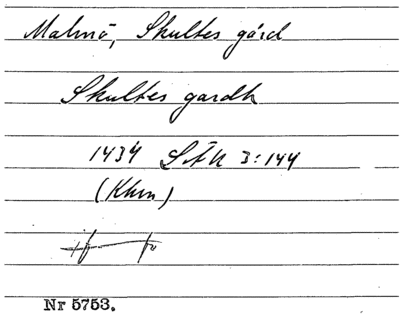 Malmö, Skultes gård
Skultes gardh
1434 SÄU 3:144
(Khvn)
Nr 5753.